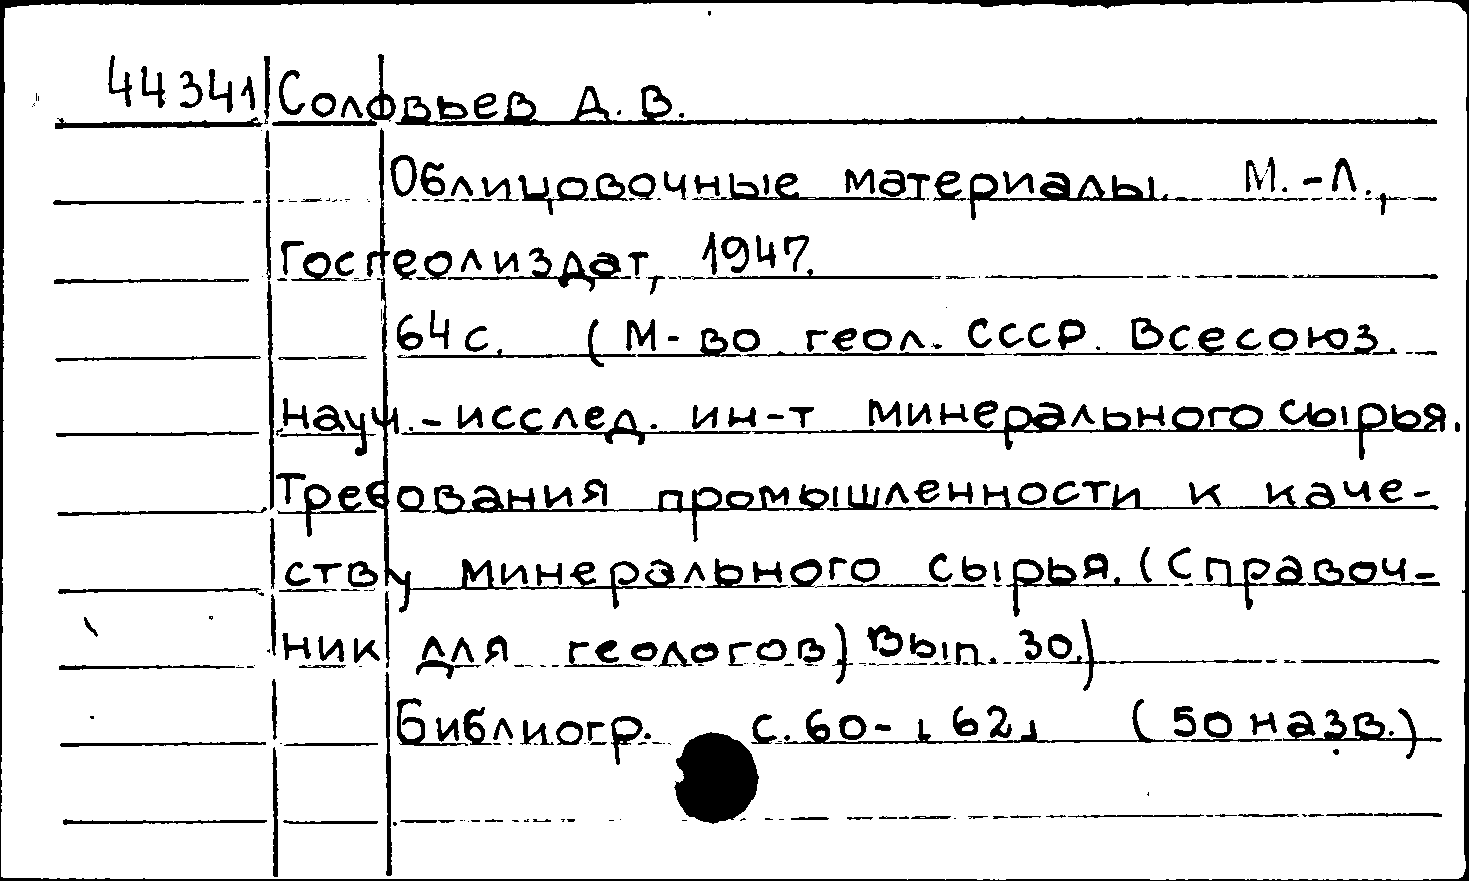 44341 Соловьев Д. В.
Облицовочные материалы. М.-Л.,
Госгеолиздат, 1947.
64 с. (М-во геол. СССР. Всесоюз.
науч.-исслед. ин-т минерального сырья.
Требования промышленности к каче-
ству минерального сырья. (Справоч-
ник для геологов) Вып. 30.)
Библиогр. с. 60-[62] (50 назв.)